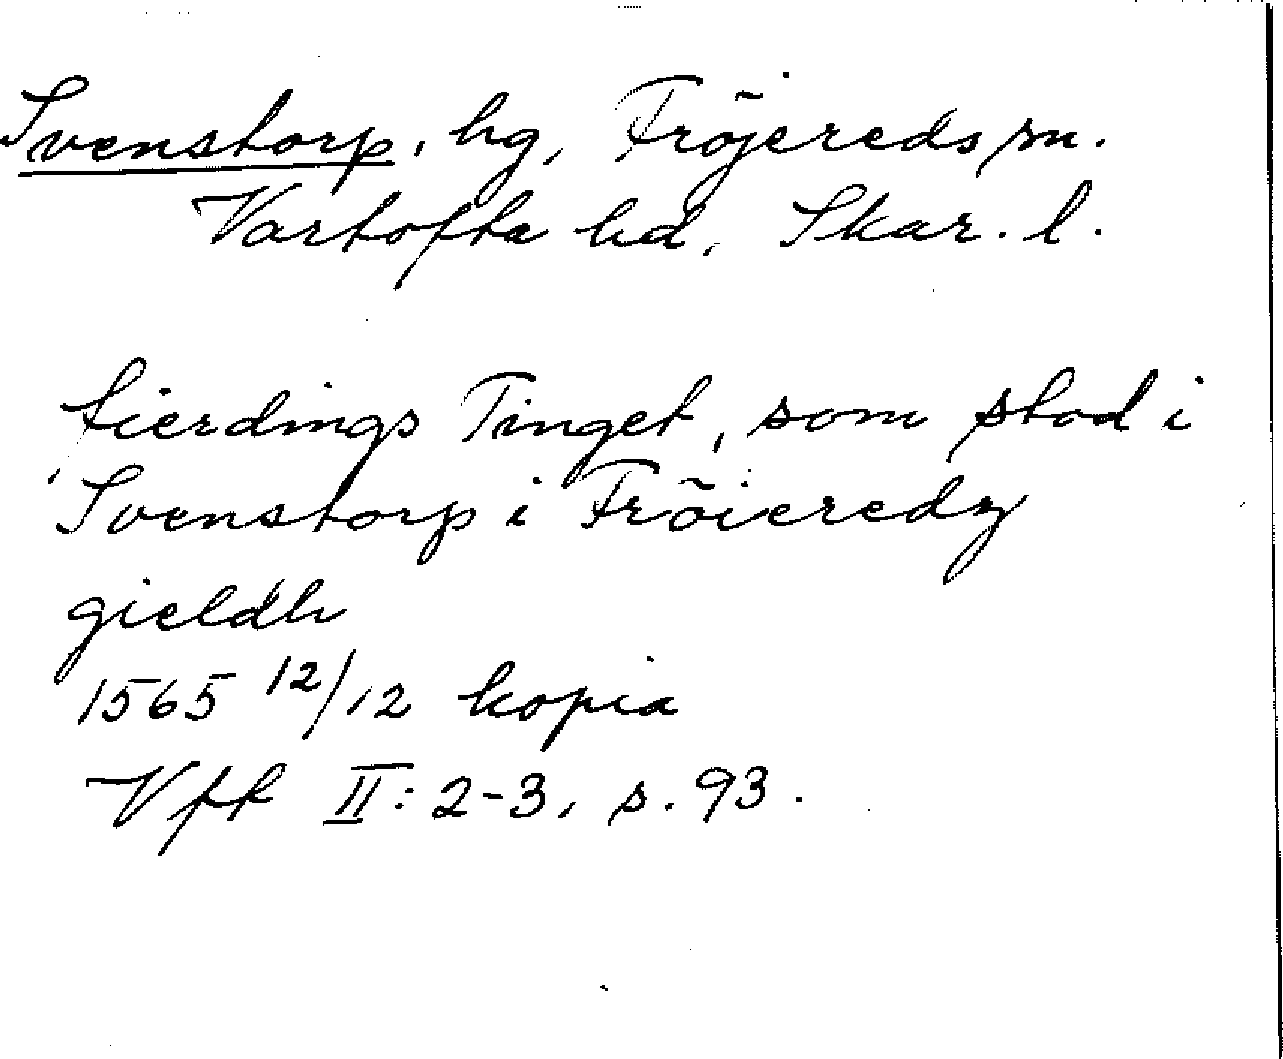 Svenstorp, hg, Fröjereds sn.
Vartofta hd, Skar. l.
fierdings Tinget, som stod i
Svenstorp i Fröieredz
gieldh
1565 12/12 kopia
Vff II: 2-3, s. 93.